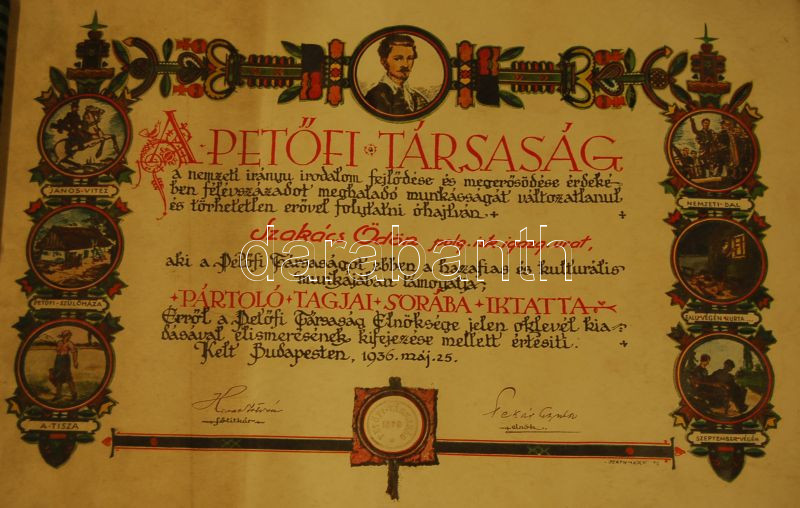 A · PETŐFI · TÁRSASÁG
a nemzeti irányu irodalom fejlődése és megerősödése érdeké-
ben félévszázadot meghaladó munkásságát változatlanul
és törhetetlen erővel folytatni óhajtván.
Szakács Ödön polg. isk. igazg. urat,
aki a Petőfi Társaságot ebben a hazafias és kulturális
munkájában támogatja,
PÁRTOLÓ TAGJAI SORÁBA IKTATTA
Erről a Petőfi Társaság Elnöksége jelen oklevél kia-
dásával elismerésének kifejezése mellett értesiti.
Kelt Budapesten, 1936. máj. 25.
főtitkár
Pekár Gyula
elnök
JÁNOS-VITÉZ
PETŐFI-SZÜLŐHÁZA
A-TISZA
NEMZETI-DAL
FALU-VÉGÉN KURTA...
SZEPTEMBER-VÉGÉN
PETŐFI-TÁRSASÁG
1876
darabanth